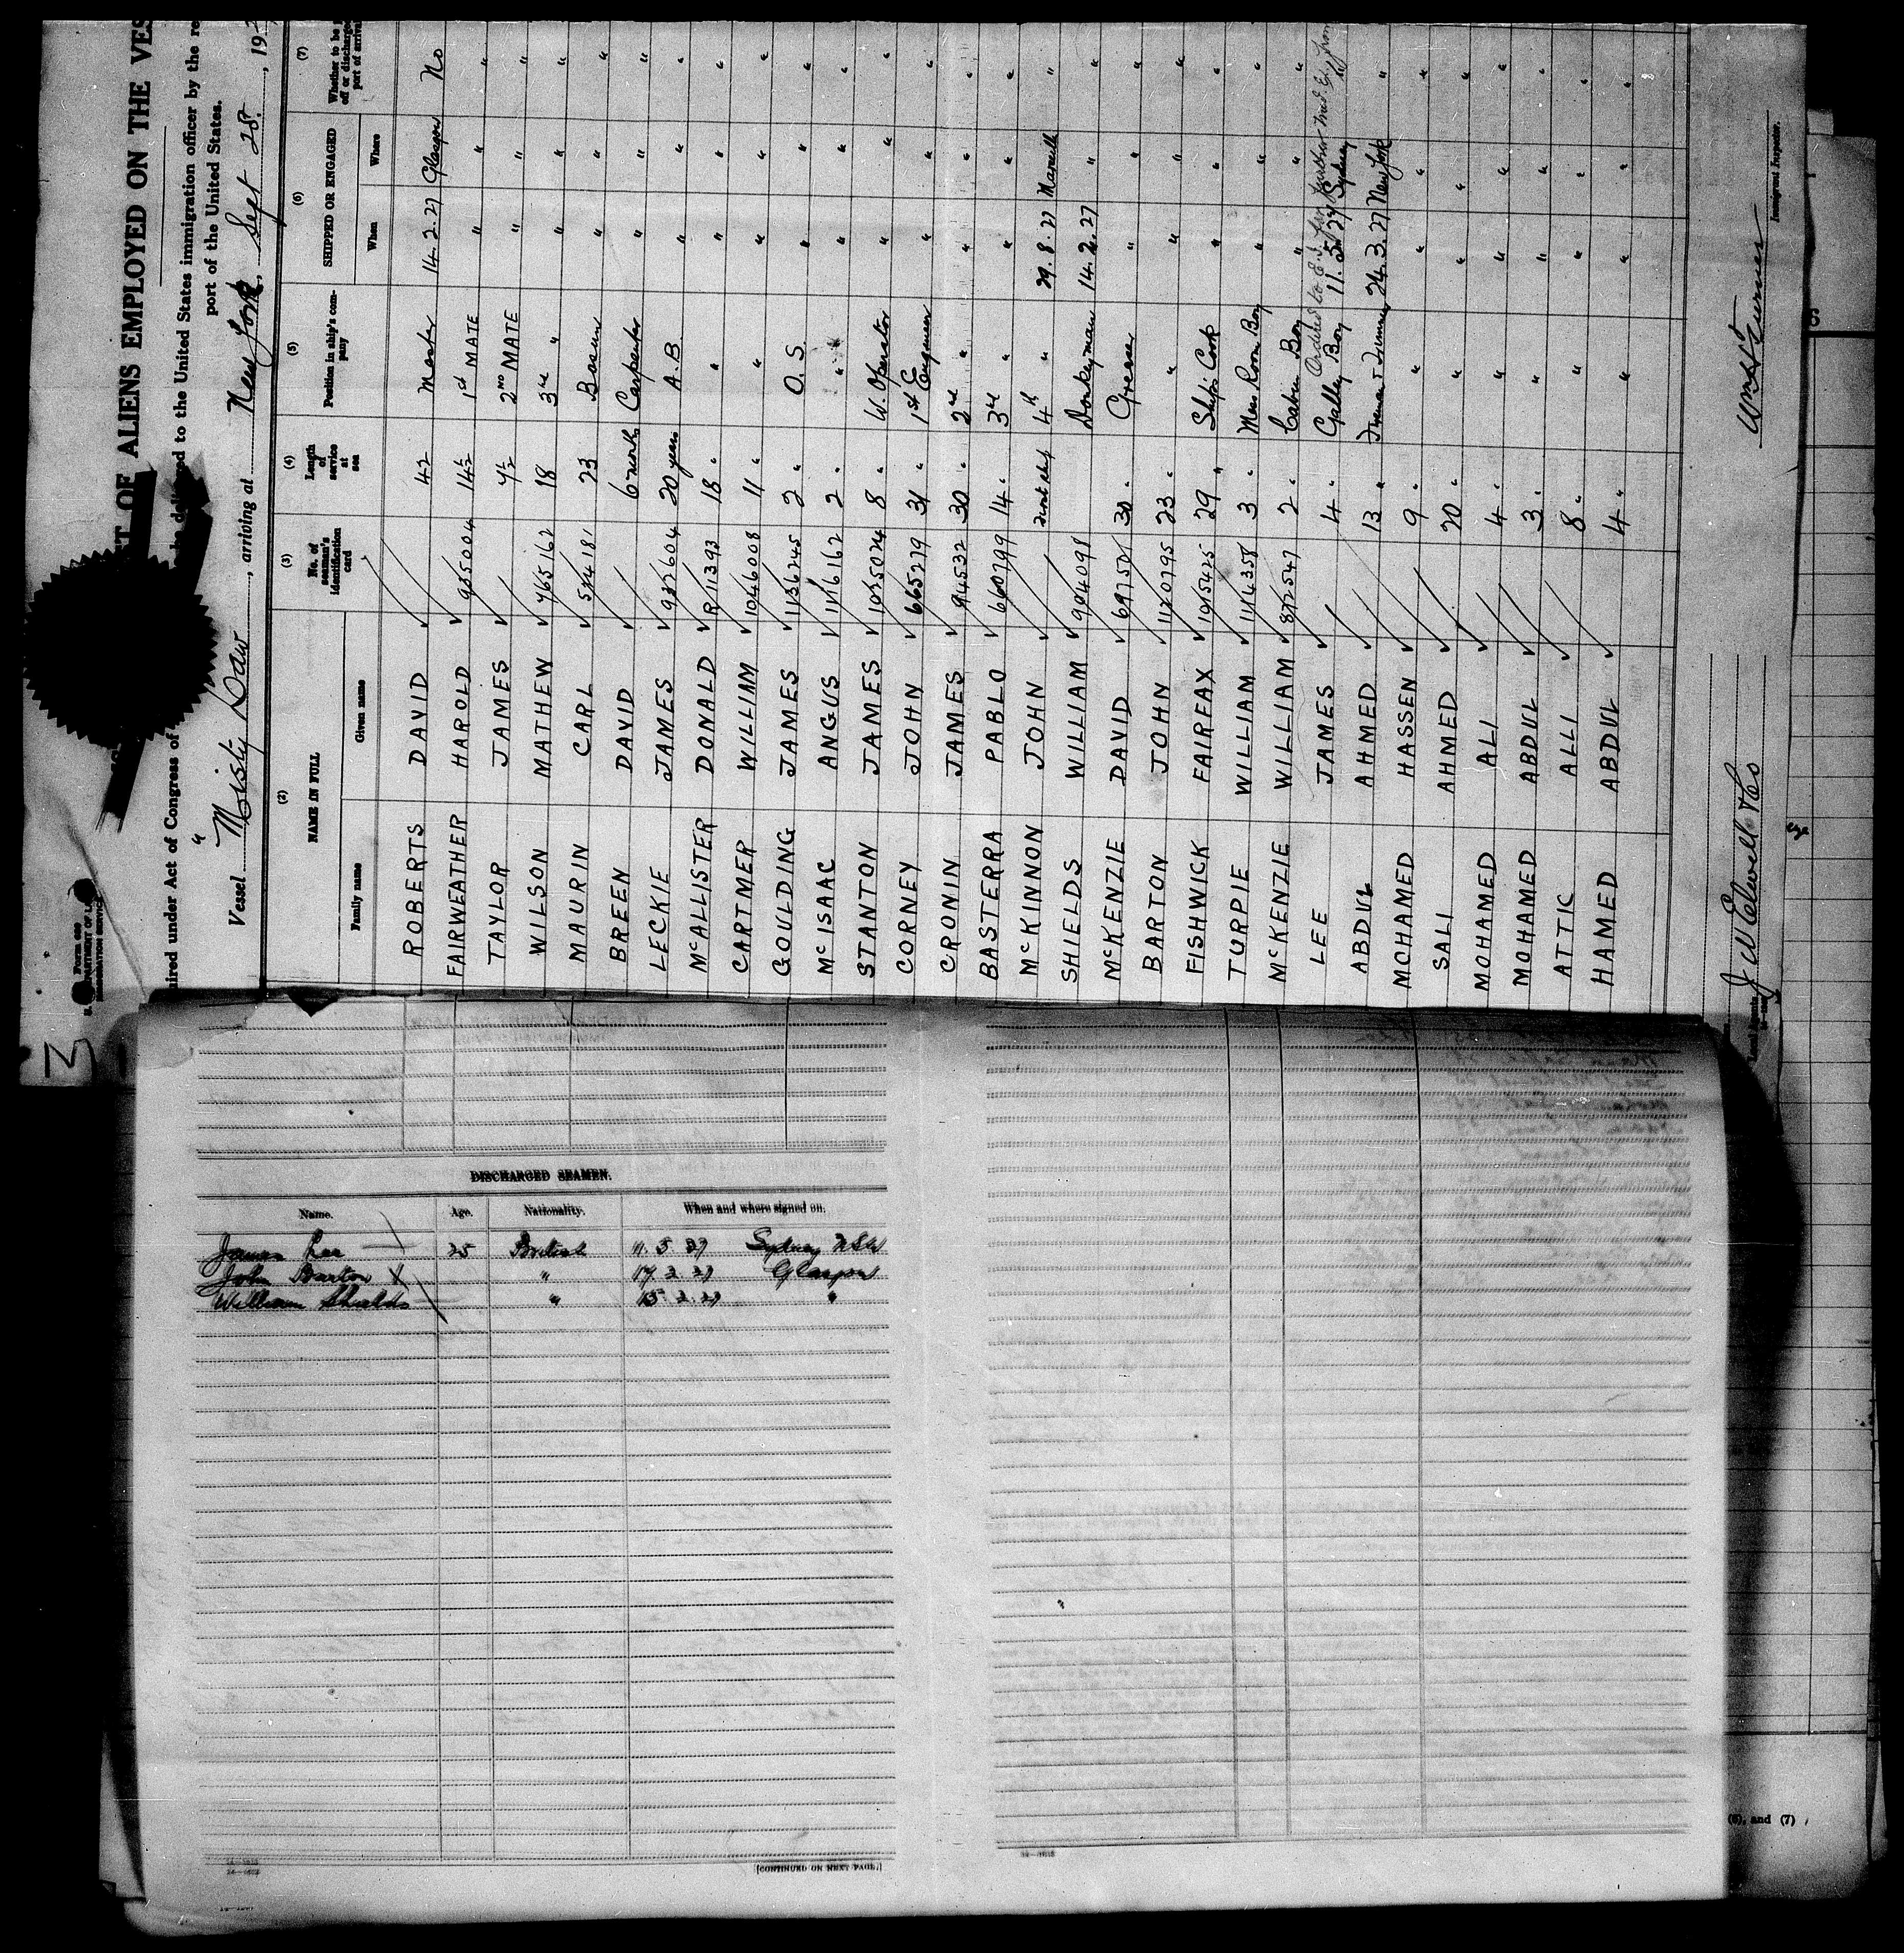 3
Form 680
LIST OF ALIENS EMPLOYED ON THE VES
Required under Act of Congress of be delivered to the United States immigration officer by the re
port of the United States.
Vessel "Misty Law, arriving at New York, Sept 28., 19
(2) (3) (4) (5) (6) (7)
NAME IN FULL No. of seaman's identification card Length of service at sea Position in ship's company SHIPPED OR ENGAGED Whether to be off or discharged port of arrival
Family name Given name When Where
ROBERTS DAVID 42 Master 14.2.27 Glasgow No
FAIRWEATHER HAROLD 935004 14½ 1st MATE " " "
TAYLOR JAMES 7½ 2ND MATE " " "
WILSON MATHEW 765162 18 3rd " " " "
MAURIN CARL 534181 23 Bosun " " "
BREEN DAVID 6 months Carpenter " " "
LECKIE JAMES 932604 20 years A.B " " "
McALLISTER DONALD R11393 18 " " " " "
CARTMER WILLIAM 1046008 11 " " " " "
GOULDING JAMES 1136245 2 " O.S. " " "
McISAAC ANGUS 1116162 2 " " " " "
STANTON JAMES 1025024 8 " W. Operator " " "
CORNEY JOHN 665279 31 " 1st Engineer " " "
CRONIN JAMES 94532 30 " 2nd " " " "
BASTERRA PABLO 660799 14 " 3rd " " " "
McKINNON JOHN first ship 4th " 29.8.27 Marseille "
SHIELDS WILLIAM 904098 Donkeyman 14.2.27 " "
McKENZIE DAVID 69752 30 " Greaser " " "
BARTON JOHN 1120795 23 " " " " "
FISHWICK FAIRFAX 1015425 29 " Ship's Cook " " "
TURPIE WILLIAM 1114358 3 " Mess Room Boy " " "
McKENZIE WILLIAM 872547 2 " Cabin Boy " " "
Ordered to E.I. for further med. Ex.
LEE JAMES 4 " Galley Boy 11.5.27 Sydney
ABDUL AHMED 13 " Fireman & Trimmer 24.3.27 New York "
MOHAMED HASSEN 9 " " " " "
SALI AHMED 20 " " " " "
MOHAMED ALI 4 " " " " "
MOHAMED ABDUL 3 " " " " "
ATTIC ALLI 8 " " " " "
HAMED ABDUL 4 " " " " "
Immigrant Inspector.
DISCHARGED SEAMEN.
Name. Age. Nationality. When and where signed on.
James Lee 25 British 11.5.27 Sydney NSW
John Barton X " 14.2.27 Glasgow
William Shields " 15.2.27 "
[CONTINUED ON NEXT PAGE.]
(6), and (7)